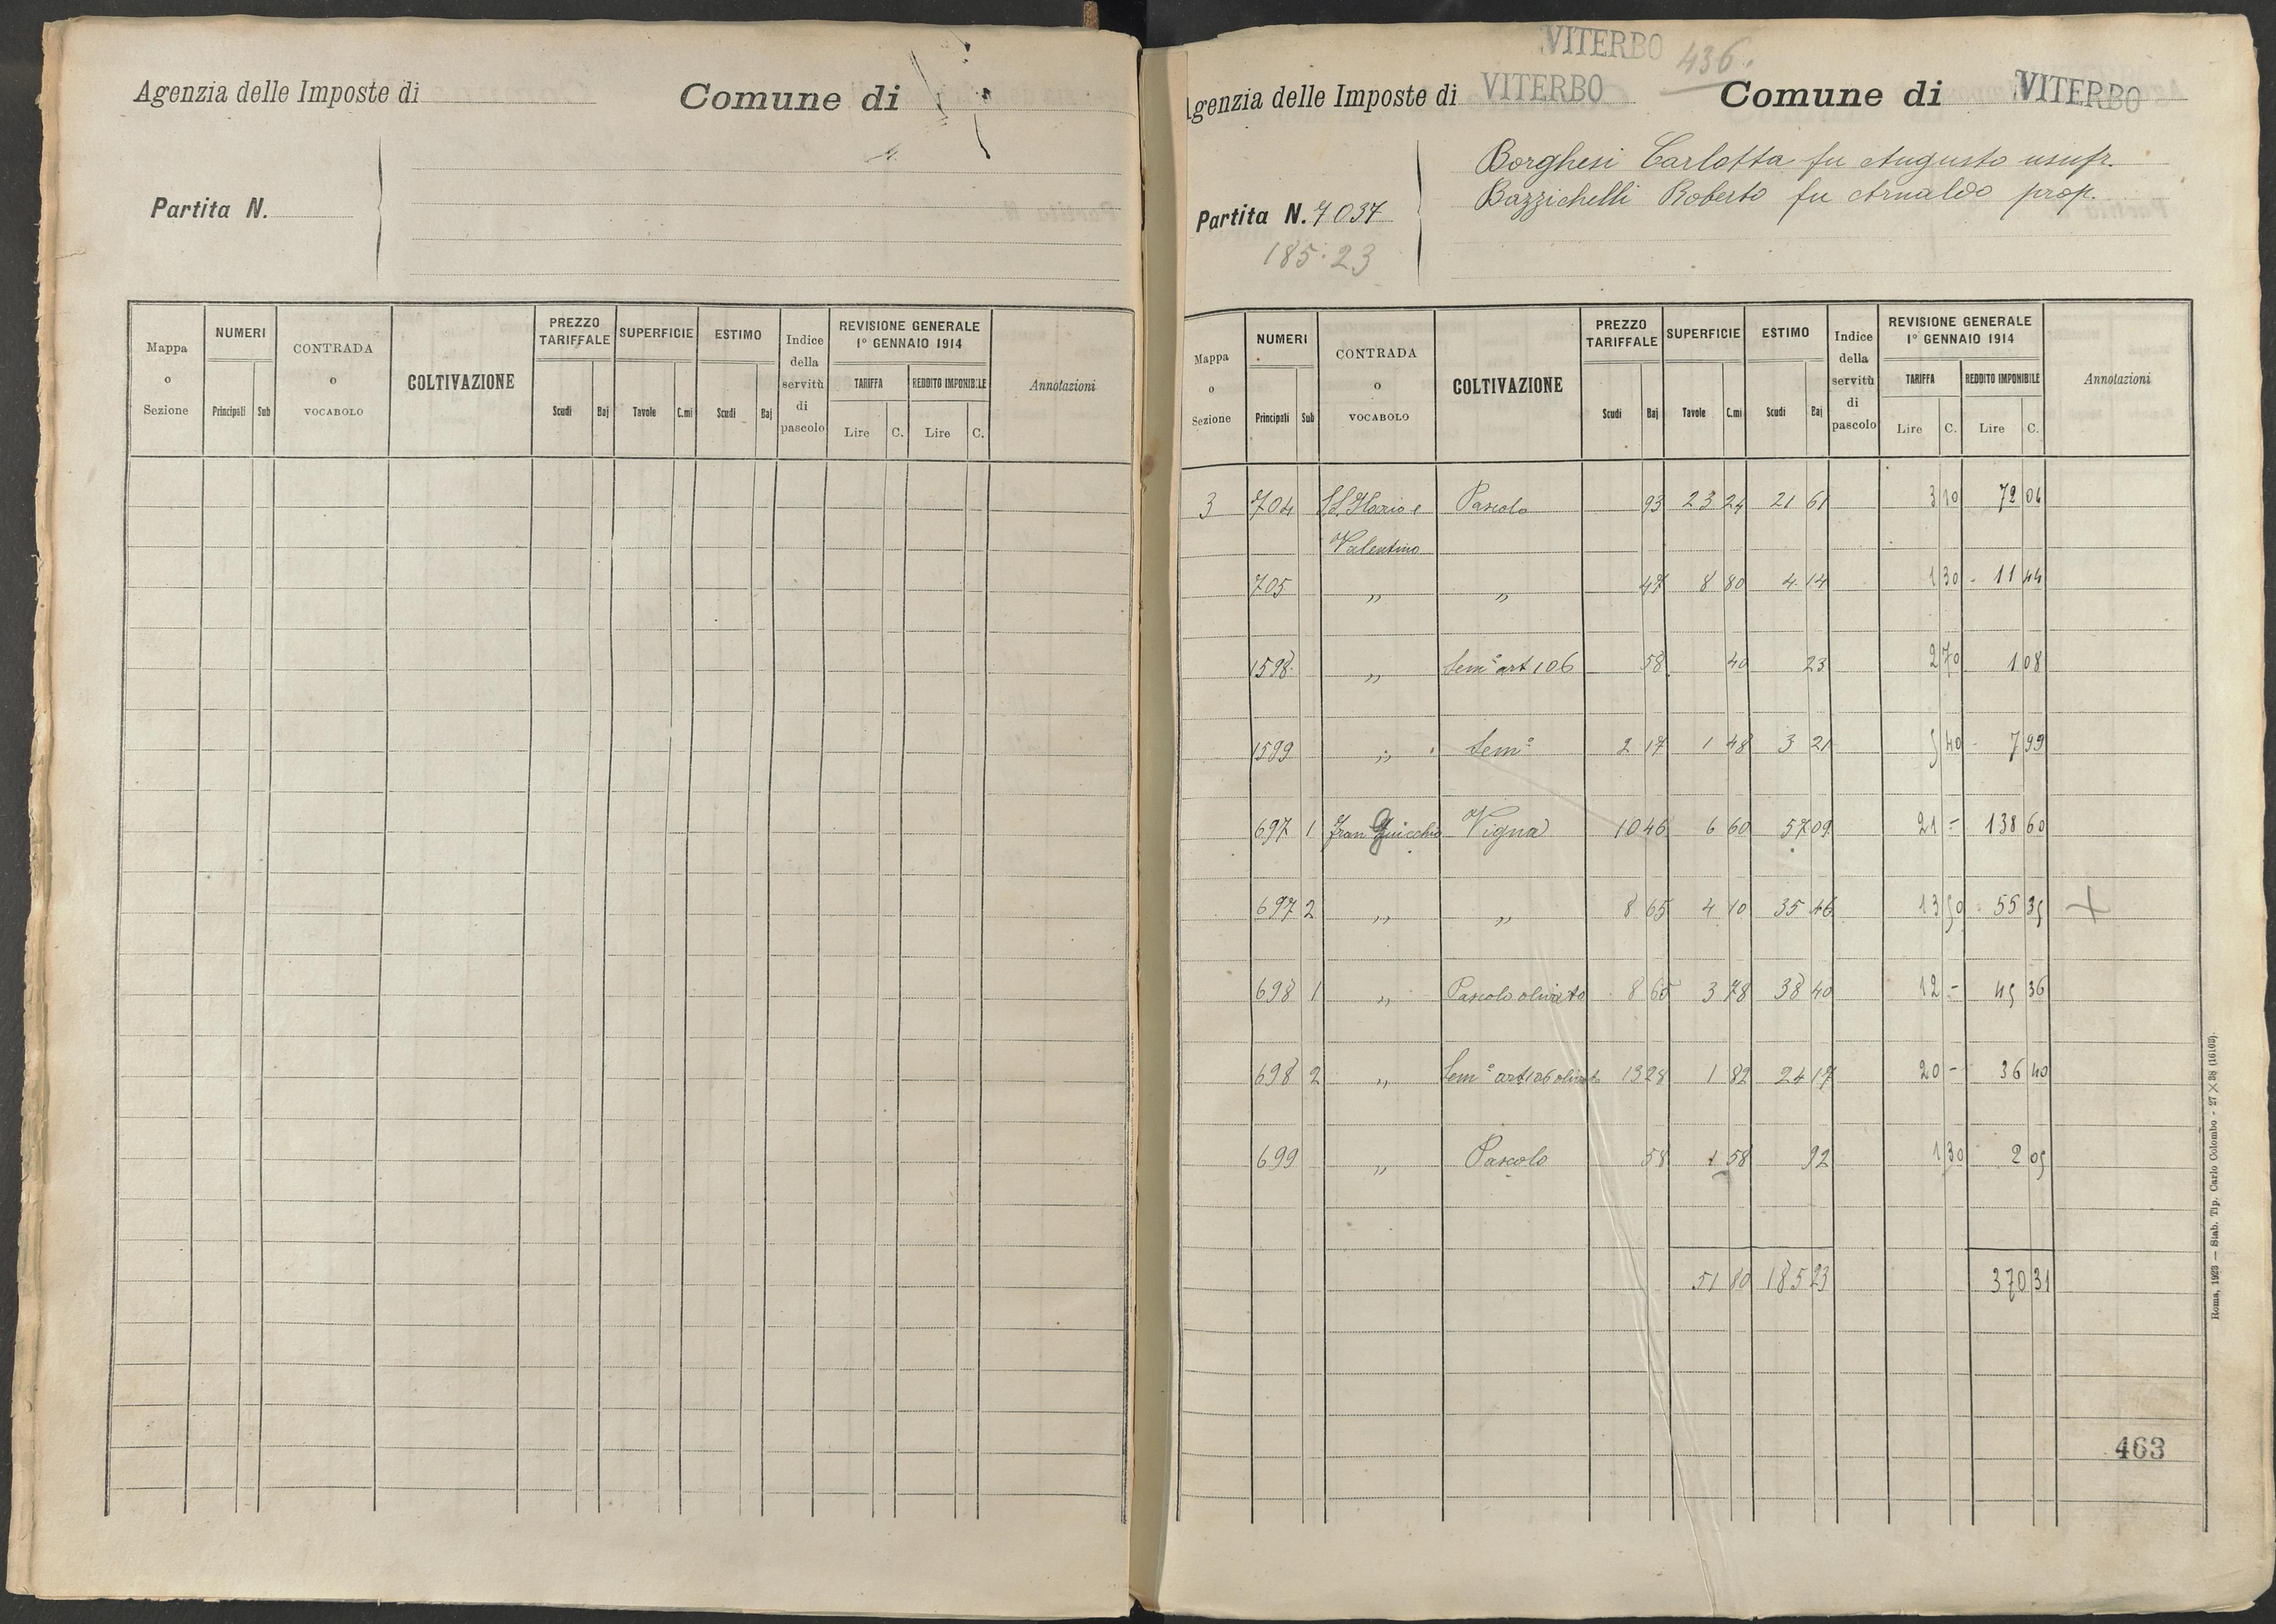 Agenzia delle Imposte di Comune di
Partita N.
Mappa o Sezione NUMERI Principali Sub CONTRADA o VOCABOLO COLTIVAZIONE PREZZO TARIFFALE Scudi Baj SUPERFICIE Tavole C.mi ESTIMO Scudi Baj Indice della servitù di pascolo REVISIONE GENERALE 1° GENNAIO 1914 TARIFFA Lire C. REDDITO IMPONIBILE Lire C. Annotazioni
VITERBO 436.
Agenzia delle Imposte di VITERBO Comune di VITERBO
Borghesi Carlotta fu Augusto usufr.
Bazzichelli Roberto fu Arnaldo prop.
Partita N. 7037
185:23
Mappa o Sezione NUMERI Principali Sub CONTRADA o VOCABOLO COLTIVAZIONE PREZZO TARIFFALE Scudi Baj SUPERFICIE Tavole C.mi ESTIMO Scudi Baj Indice della servitù di pascolo REVISIONE GENERALE 1° GENNAIO 1914 TARIFFA Lire C. REDDITO IMPONIBILE Lire C. Annotazioni
3 704 SS. Ilario e Pascolo 93 23 24 21 61 3 10 72 04
Valentino
705 " " 47 8 80 4 14 1 30 11 44
1598 " Sem° art 106 58 40 23 2 70 1 08
1599 " Sem° 2 17 1 48 3 21 5 40 7 99
697 1 Fran Guicchio Vigna 10 46 6 60 57 09 21 - 138 60
697 2 " " 8 65 4 10 35 46 13 50 55 35 X
698 1 " Pascolo olivato 8 65 3 78 38 40 12 - 45 36
698 2 " Sem° art 106 olivat 13 28 1 82 24 17 20 - 36 40
699 " Pascolo 58 1 58 92 1 30 2 05
51 80 185 23 370 31
463
Roma, 1923 — Stab. Tip. Carlo Colombo - 27 X 38 (16103).